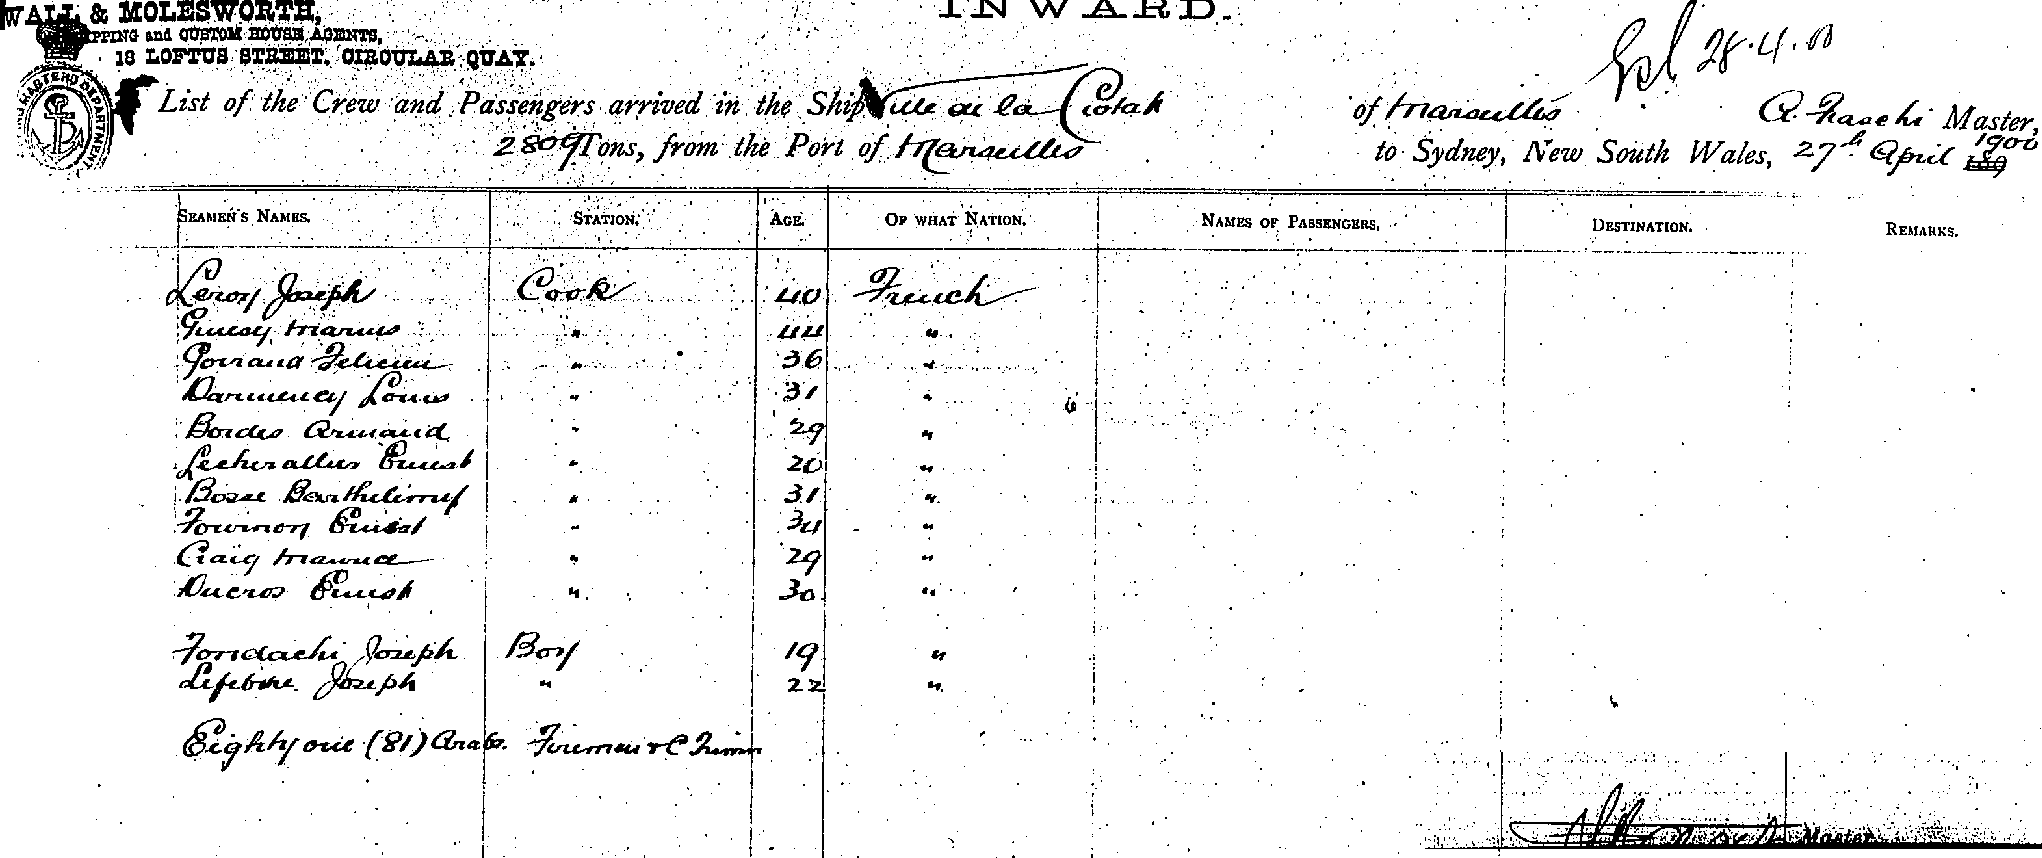 WALL & MOLESWORTH,
INWARD.
SHIPPING and CUSTOM HOUSE AGENTS,
18 LOFTUS STREET, CIRCULAR QUAY.
28.4.00
List of the Crew and Passengers arrived in the Ship Ville de la Ciotat of Marseilles A. Master,
2809 Tons, from the Port of Marseilles to Sydney, New South Wales, 27th April 1900 189
DEPARTMENT
SEAMEN'S NAMES. STATION. AGE. OF WHAT NATION. NAMES OF PASSENGERS. DESTINATION. REMARKS.
Leroy Joseph Cook 40 French
Marius " 44 "
Felicien " 36 "
Darmency Louis " 31 "
Bordes Armand " 29 "
Ernest " 20 "
Bosse Barthelimy " 31 "
Ernest " 34 "
Craig " 29 "
Ducros Ernest " 30 "
Joseph Boy 19 "
Lefebvre Joseph " 22 "
Eighty one (81) Arabs. Firemen & C Trimm
Master